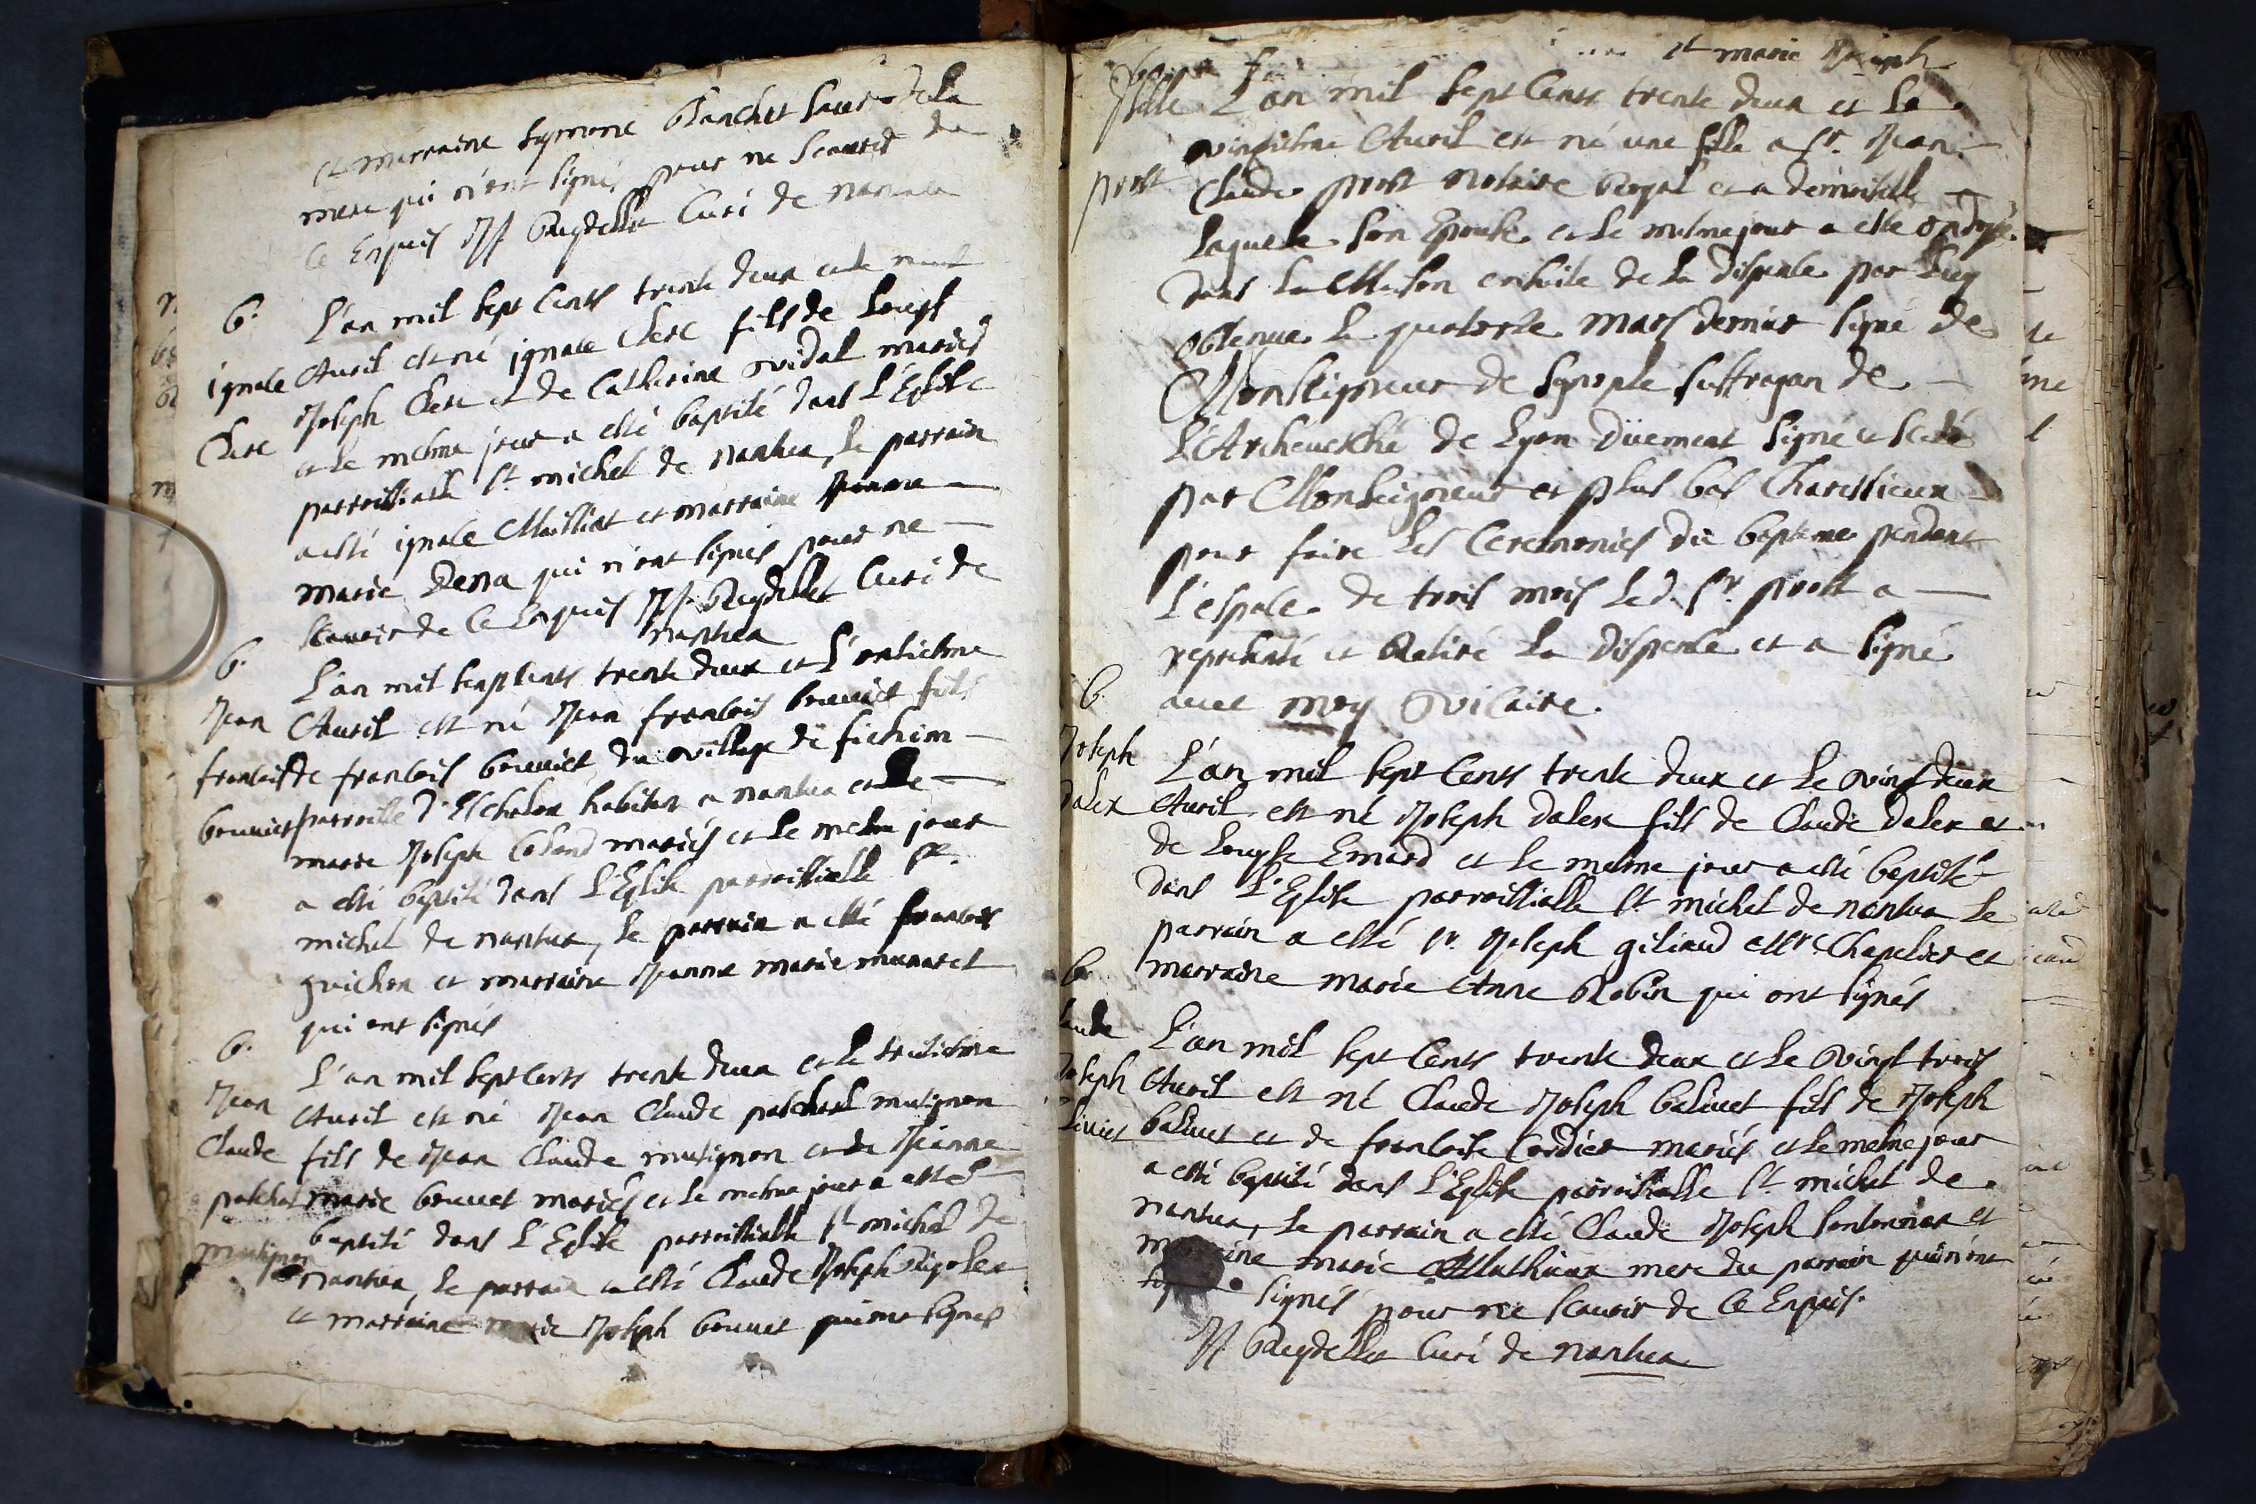 et marraine Symone Blanchet saur de la
mere qui n'ont signés pour ne scavoir de
ce Enquis JJ Beydellet Curé de nantua
b. L'an mil sept Cents trente deux et le neuf
ignace Avril est né ignace Clerc fils de Louys
Clerc Joseph Clerc et de Catherine vidal mariés
et le mesme jour a esté baptisé dans l'Eglise
parroissiale St michel de nantua, le parrain
a esté ignace Mailliat et marraine Jeanne
marie qui n'ont signés pour ne
scavoir de ce Enquis JJ Beydellet Curé de
nantua
b. L'an mil sept Cents trente deux et l'onzieme
Jean Avril est né Jean francois bouvier fils
francois de francois bouvier du village de
bouvier parroisse d'Eschalon habitant a nantua et de
marie Joseph mariés et le mesme jour
a esté baptisé dans l'Eglise parroissialle St
michel de nantua, le parrain a esté francois
guichon et marraine Jeanne marie munaret
qui ont signés
b. L'an mil sept Cents trente deux et le treizieme
Jean Avril est né Jean Claude mutignon
Claude fils de Jean Claude mutignon et de Jeanne
marie bouvet mariés et le mesme jour a esté
baptisé dans L'Eglise parroissialle St michel de
mutignon nantua, le parrain a esté Claude Joseph
et marraine marie Joseph bouvet qui ont signés
et marie Joseph
fille L'an mil sept Cents trente deux et le
vingtieme Avril est né une fille a Sr. Jean
prost Claude prost notaire Royal et a demoiselle
laquelle son Epouse et le mesme jour a esté ondoyé
dans la Maison ensuite de la dispense par luy
obtenue le quatorze mars dernier signé de
Monseigneur de Synople suffragan de
L'Archevesché de Lyon düement signé et scelé
par Monseigneur et plus bas
pour faire les Ceremonies du bapteme pendant
L'espace de trois mois led. Sr. prost a
representé et Retiré la dispense et a signé
avec moy vicaire.
b.
Joseph L'an mil sept Cents trente deux et le vingt deux
dalex Avril est né Joseph dalex fils de Claude dalex et
de Louyse Emard et le mesme jour a esté baptisé
dans l'Eglise parroissialle St michel de nantua le
parrain a esté Sr. Joseph giliaud Mre. Chapelier et
b. marraine marie Anne Robin qui ont signés
L'an mil sept Cents trente deux et le vingt trois
Avril est né Claude Joseph balivet fils de Joseph
balivet et de francoise Cordier mariés et le mesme jour
a esté baptisé dans l'Eglise parroissialle St michel de
nantua, le parrain a esté Claude Joseph et
marraine marie Mathieux mere du parrain qui n'ont
signés pour ne scavoir de ce Enquis.
JJ Beydellet Curé de nantua